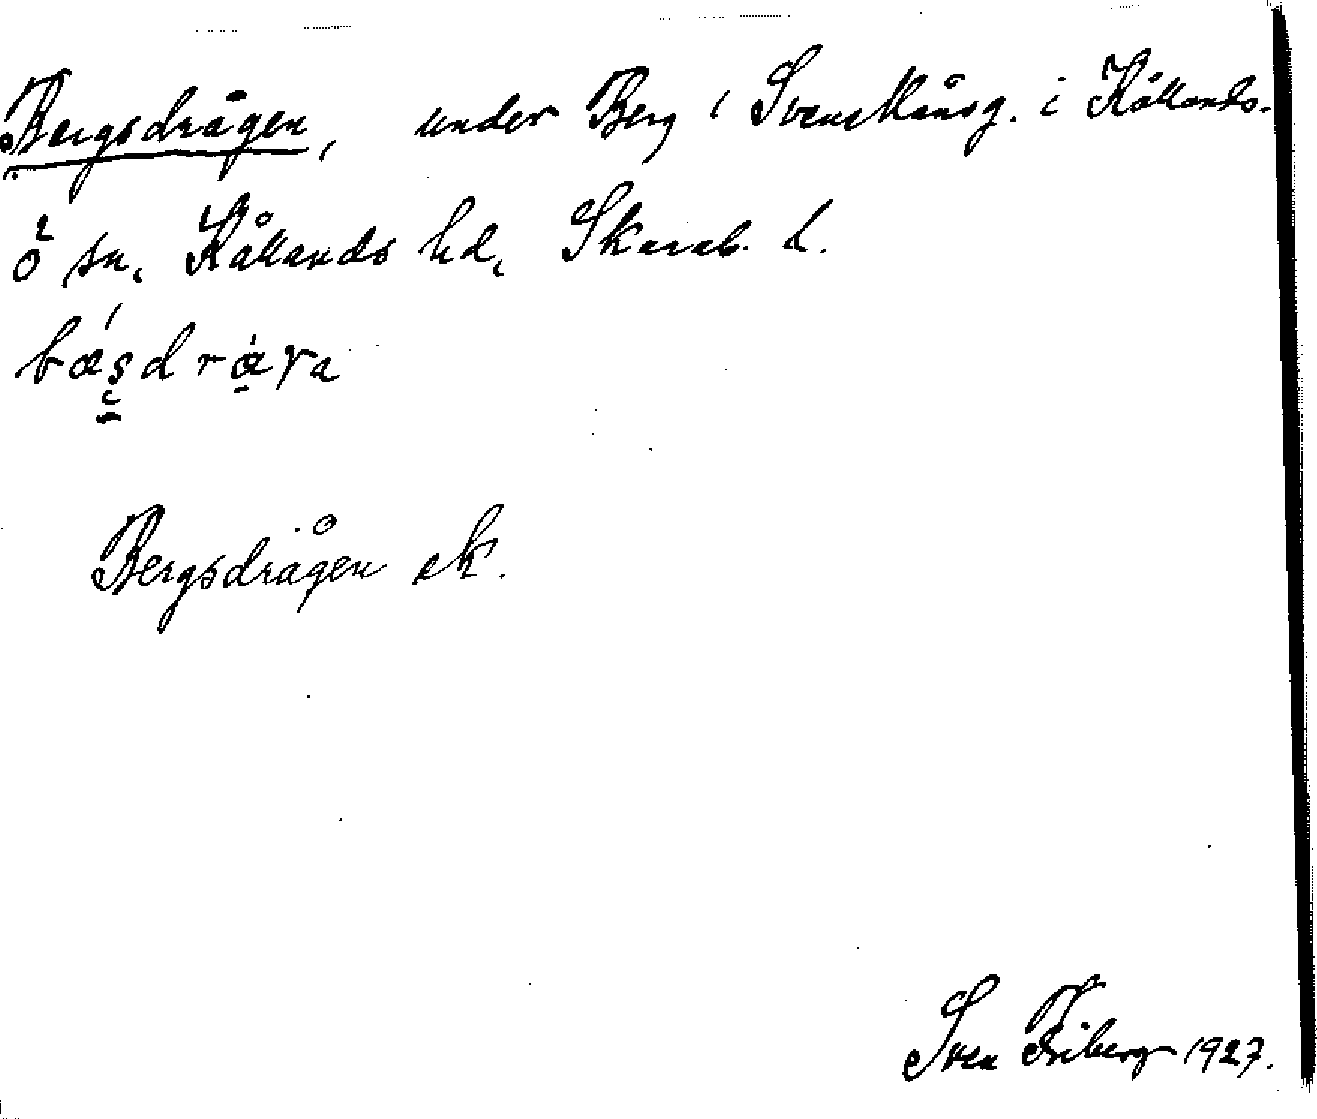 Bergsdrågen, under Berg i Svenskånsg. i Kållands-
ö sn, Kållands hd, Skarab. l.
bæ̀sdrɑ̀γa
Bergsdrågen ek.
Sven Friberg 1927.